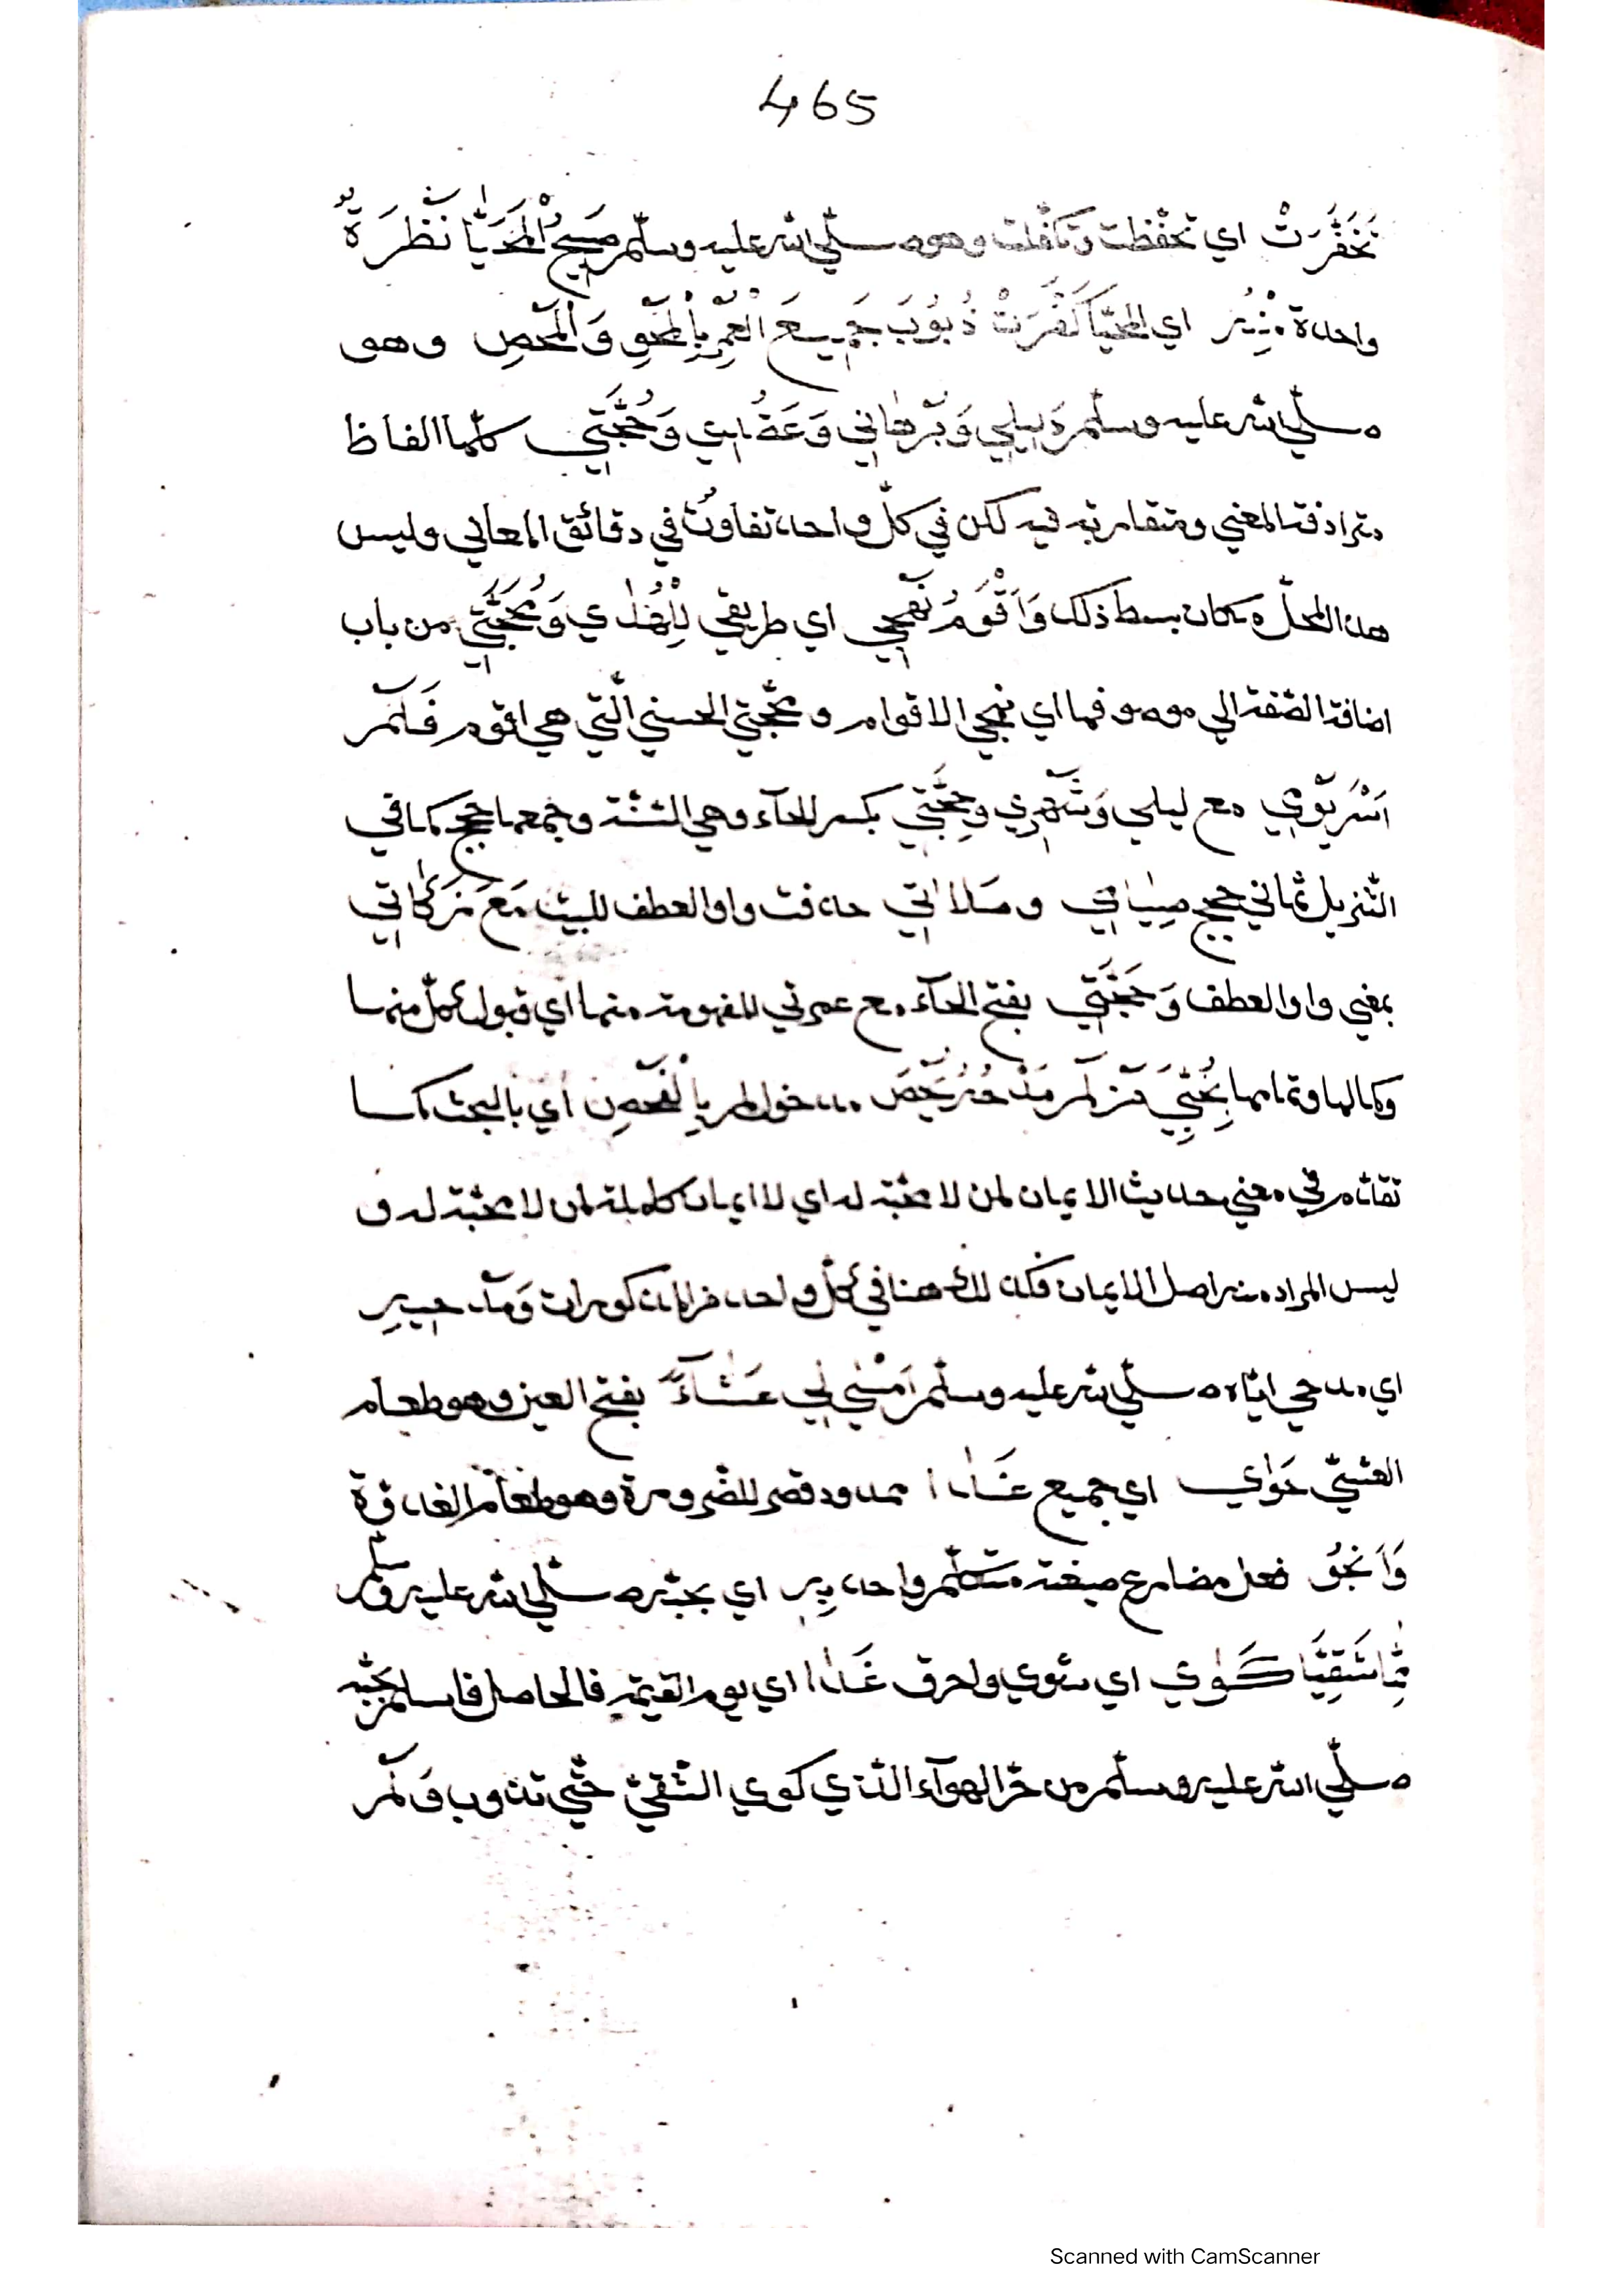 465
تَخَفَّرَتْ اي تحفّظت وتكفّلت وهو صلّي الله عليه وسلّم صَبِيحُ الْمُحَيَّا نَظْرَةٌ
واحدة مِنْهُ اي المحيّا كَفَّرَتْ ذُنُوبَ جَمِيعَ الْعُمْرِ بِالْمَحْوِ وَالْمَحْصِ وهو
صلّي الله عليه وسلّم دَلِيلِي وَبُرْهَانِي وَعَقْدِي وَحُجَّتِي كلّها الفاظ
مترادفة المعني ومتقاربة فيه لكن في كلّ واحد تفاوتٌ في دقائق المعاني وليس
هذا المحلّ مكان بسط ذلك وَاَقْوَمُ نَهْجِي اي طريقي لِلْهُدٰي وَمَحَجَّتِي من باب
اضافة الصّفة الي موصوفها اي نهجي الاقوام و محجّتي الحسني الّتي هي اقوم فَلَمْ
اَشْرِ يَوْمِي مع ليلي وَشَهْرِي وَحِجَّتِي بكسر الحآء وهي السّنة وجمعها حجج كما في
التّنزيل ثماني حجج صِيَامِي و صَلاَتِي حذفت واو العطف للبيت مَعَ زَكٰاتِي
بمعني واو العطف وَحَجَّتِي بفتح الحآء مع عمرتي المفهومة منها اي قبول كلّ منها
وكمالها وتمامها بِحُبِّي فَمَنْ لَمْ حُبُّ يَحْصَ مدخول لم بِالْفَحْصِ اي بالبحث كما
تقدّم في معني حديث الا يمان لمن لا محبّة له اي لا ايمان كاملة لمن لا محبّة له و
ليس المراد منه اصل الايمان فكذلك هنا في كلّ واحد من المذكورات وَمَدْحِيهِ
اي مدحي ايّاه صلّي الله عليه وسلّم اَمْسٰي لِي عَشَآءً بفتح العين وهو طعام
العشيّ حَوٰي اي جميع غَدَا ممدود قصر للضّرورة وهو طعام الغدوة
وَاَنْجُو فعل مضارع صيغة متكلّم واحد بِهِ اي بحبّه صلّي الله عليه وسلّم
مِمَّا شَقِيًّا كَوٰي اي شوي واحرق غَدًا اي يوم القيمة فالحاصل فاسلم بحبّه
صلّي الله عليه وسلّم من حرّ الهوآء الّذي كوي الشّقيّ حتّي تذوب وَلَمْ
Scanned with CamScanner